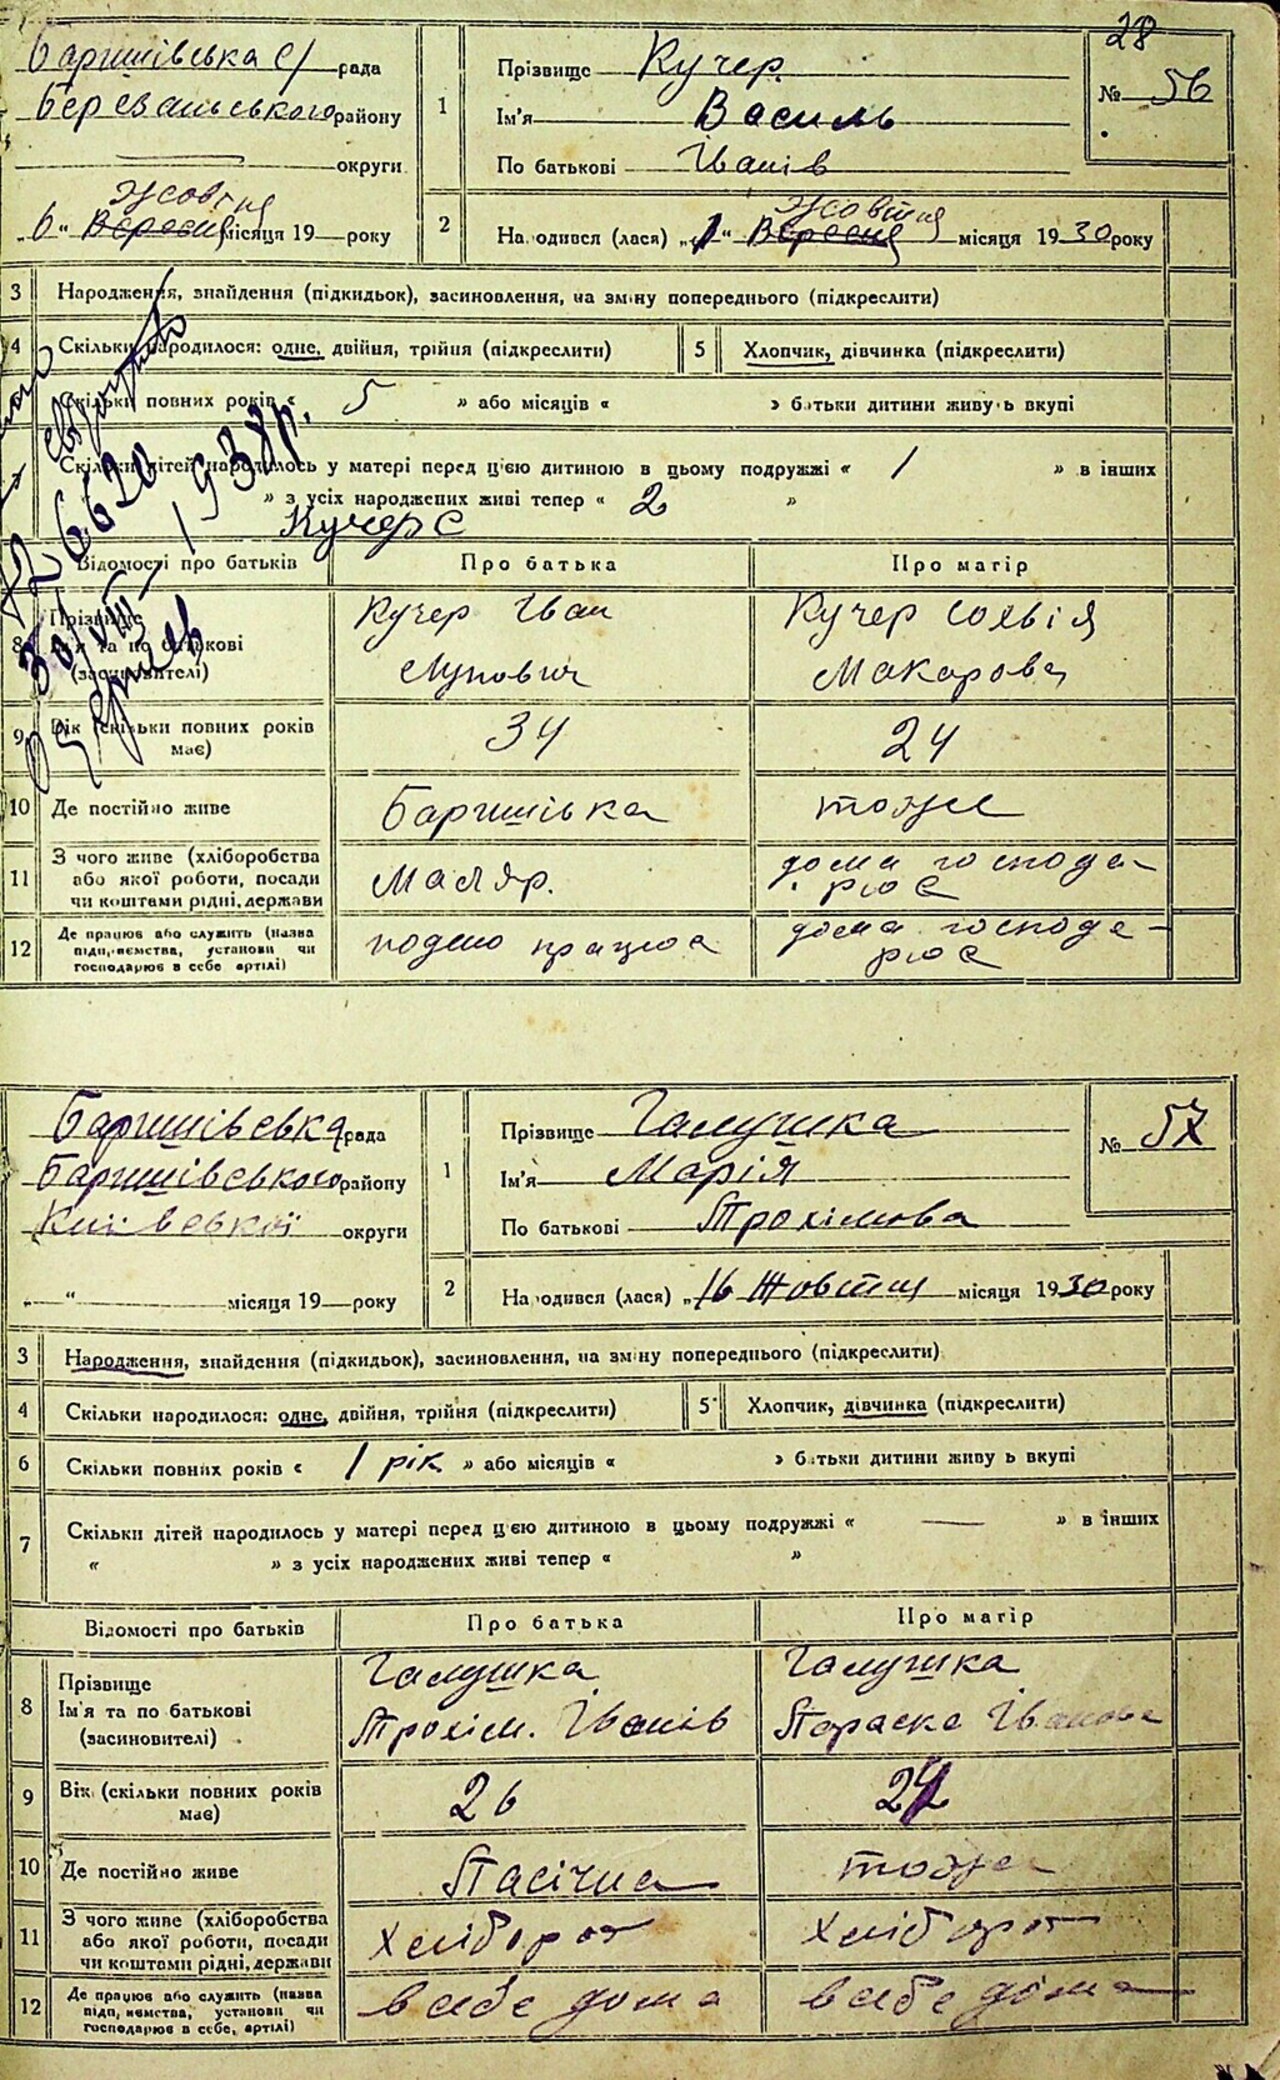 28
Баришівська с/ рада
Березанського району
округи
„6“ Вересня Жовтня місяця 19 — року
1
Прізвище Кучер
Ім'я Василь
По батькові Іванів
№ 56
2
Народився (лася) „1“ Вересня Жовтня місяця 1930 року
3 Народження, знайдення (підкидьок), засиновлення, на зміну попереднього (підкреслити)
4 Скільки народилося: одне, двійня, трійня (підкреслити)
5 Хлопчик, дівчинка (підкреслити)
Скільки повних років « 5 » або місяців « » батьки дитини живуть вкупі
Скільки дітей народилось у матері перед цією дитиною в цьому подружжі « 1 » в інших
» з усіх народжених живі тепер « 2 »
Кучер С
1938р.
Відомості про батьків
Про батька
Про матір
8 Прізвище
Ім'я та по батькові
(засновителі)
Кучер Іван
Лупович
Кучер Софія
Макарова
9 Вік (скільки повних років
має)
34
24
10 Де постійно живе
Баришівка
тоже
11 З чого живе (хліборобства
або якої роботи, посади
чи коштами рідні, держави
Маляр.
дома господа-
рює
12 Де працює або служить (назва
підприємства, установи чи
господарює в себе артілі)
подено працює
дома господа-
рює
Баришівська рада
Баришівського району
Київської округи
„—“ — місяця 19 — року
1
Прізвище Галушка
Ім'я Марія
По батькові Трохімова
№ 57
2
Народився (лася) „16 Жовтня місяця 1930 року
3 Народження, знайдення (підкидьок), засиновлення, на зміну попереднього (підкреслити)
4 Скільки народилося: одне, двійня, трійня (підкреслити)
5 Хлопчик, дівчинка (підкреслити)
6 Скільки повних років « 1 рік » або місяців « » батьки дитини живуть вкупі
7 Скільки дітей народилось у матері перед цією дитиною в цьому подружжі « — » в інших
« » з усіх народжених живі тепер « »
Відомості про батьків
Про батька
Про матір
8 Прізвище
Ім'я та по батькові
(засиновителі)
Галушка
Трохім. Іванів
Галушка
Параска Іванова
9 Вік (скільки повних років
має)
26
10 Де постійно живе
Пасічна
тоже
11 З чого живе (хліборобства
або якої роботи, посади
чи коштами рідні, держави
Хлібороб
Хлібороб
12 Де працює або служить (назва
підприємства, установи чи
господарює в себе, артілі)
в себе дома
в себе дома